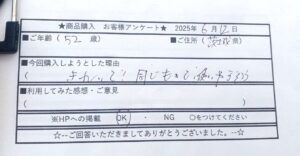 ★商品購入 お客様アンケート★ 2025年6月12日
■ご年齢(52歳) ■ご住所(茨城県)
■今回購入しようとした理由
(きれいで!同じも)
■利用してみた感想・ご意見
( )
※HPへの掲載 OK ・ NG ○をつけてください
☆--ご回答いただきましてありがとうございました。--☆